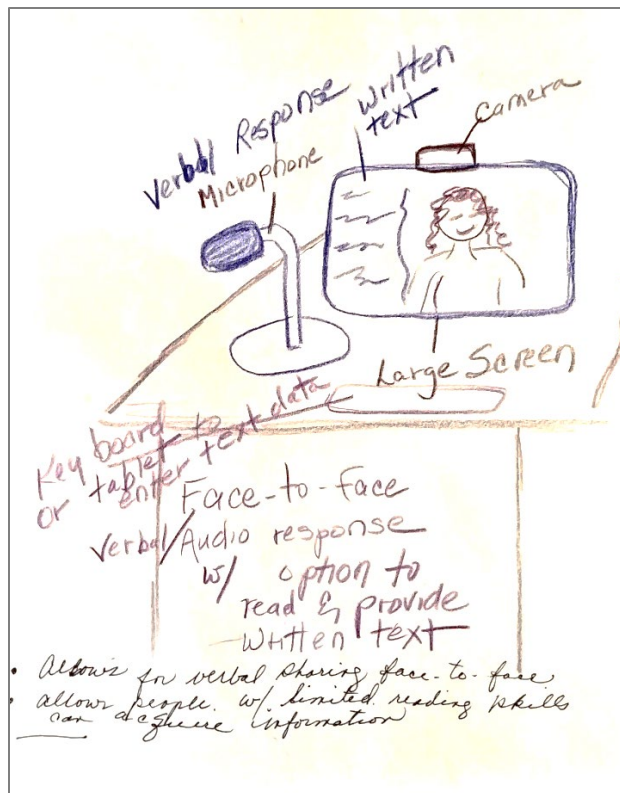 Verbal Response
Microphone
written
text
Camera
Large Screen
Keyboard
or tablet to
enter text data
Face-to-Face
Verbal/Audio response
w/ option to
read & provide
written text
• Allows for verbal sharing face-to-face
• allows people w/ limited reading skills
can acquire information